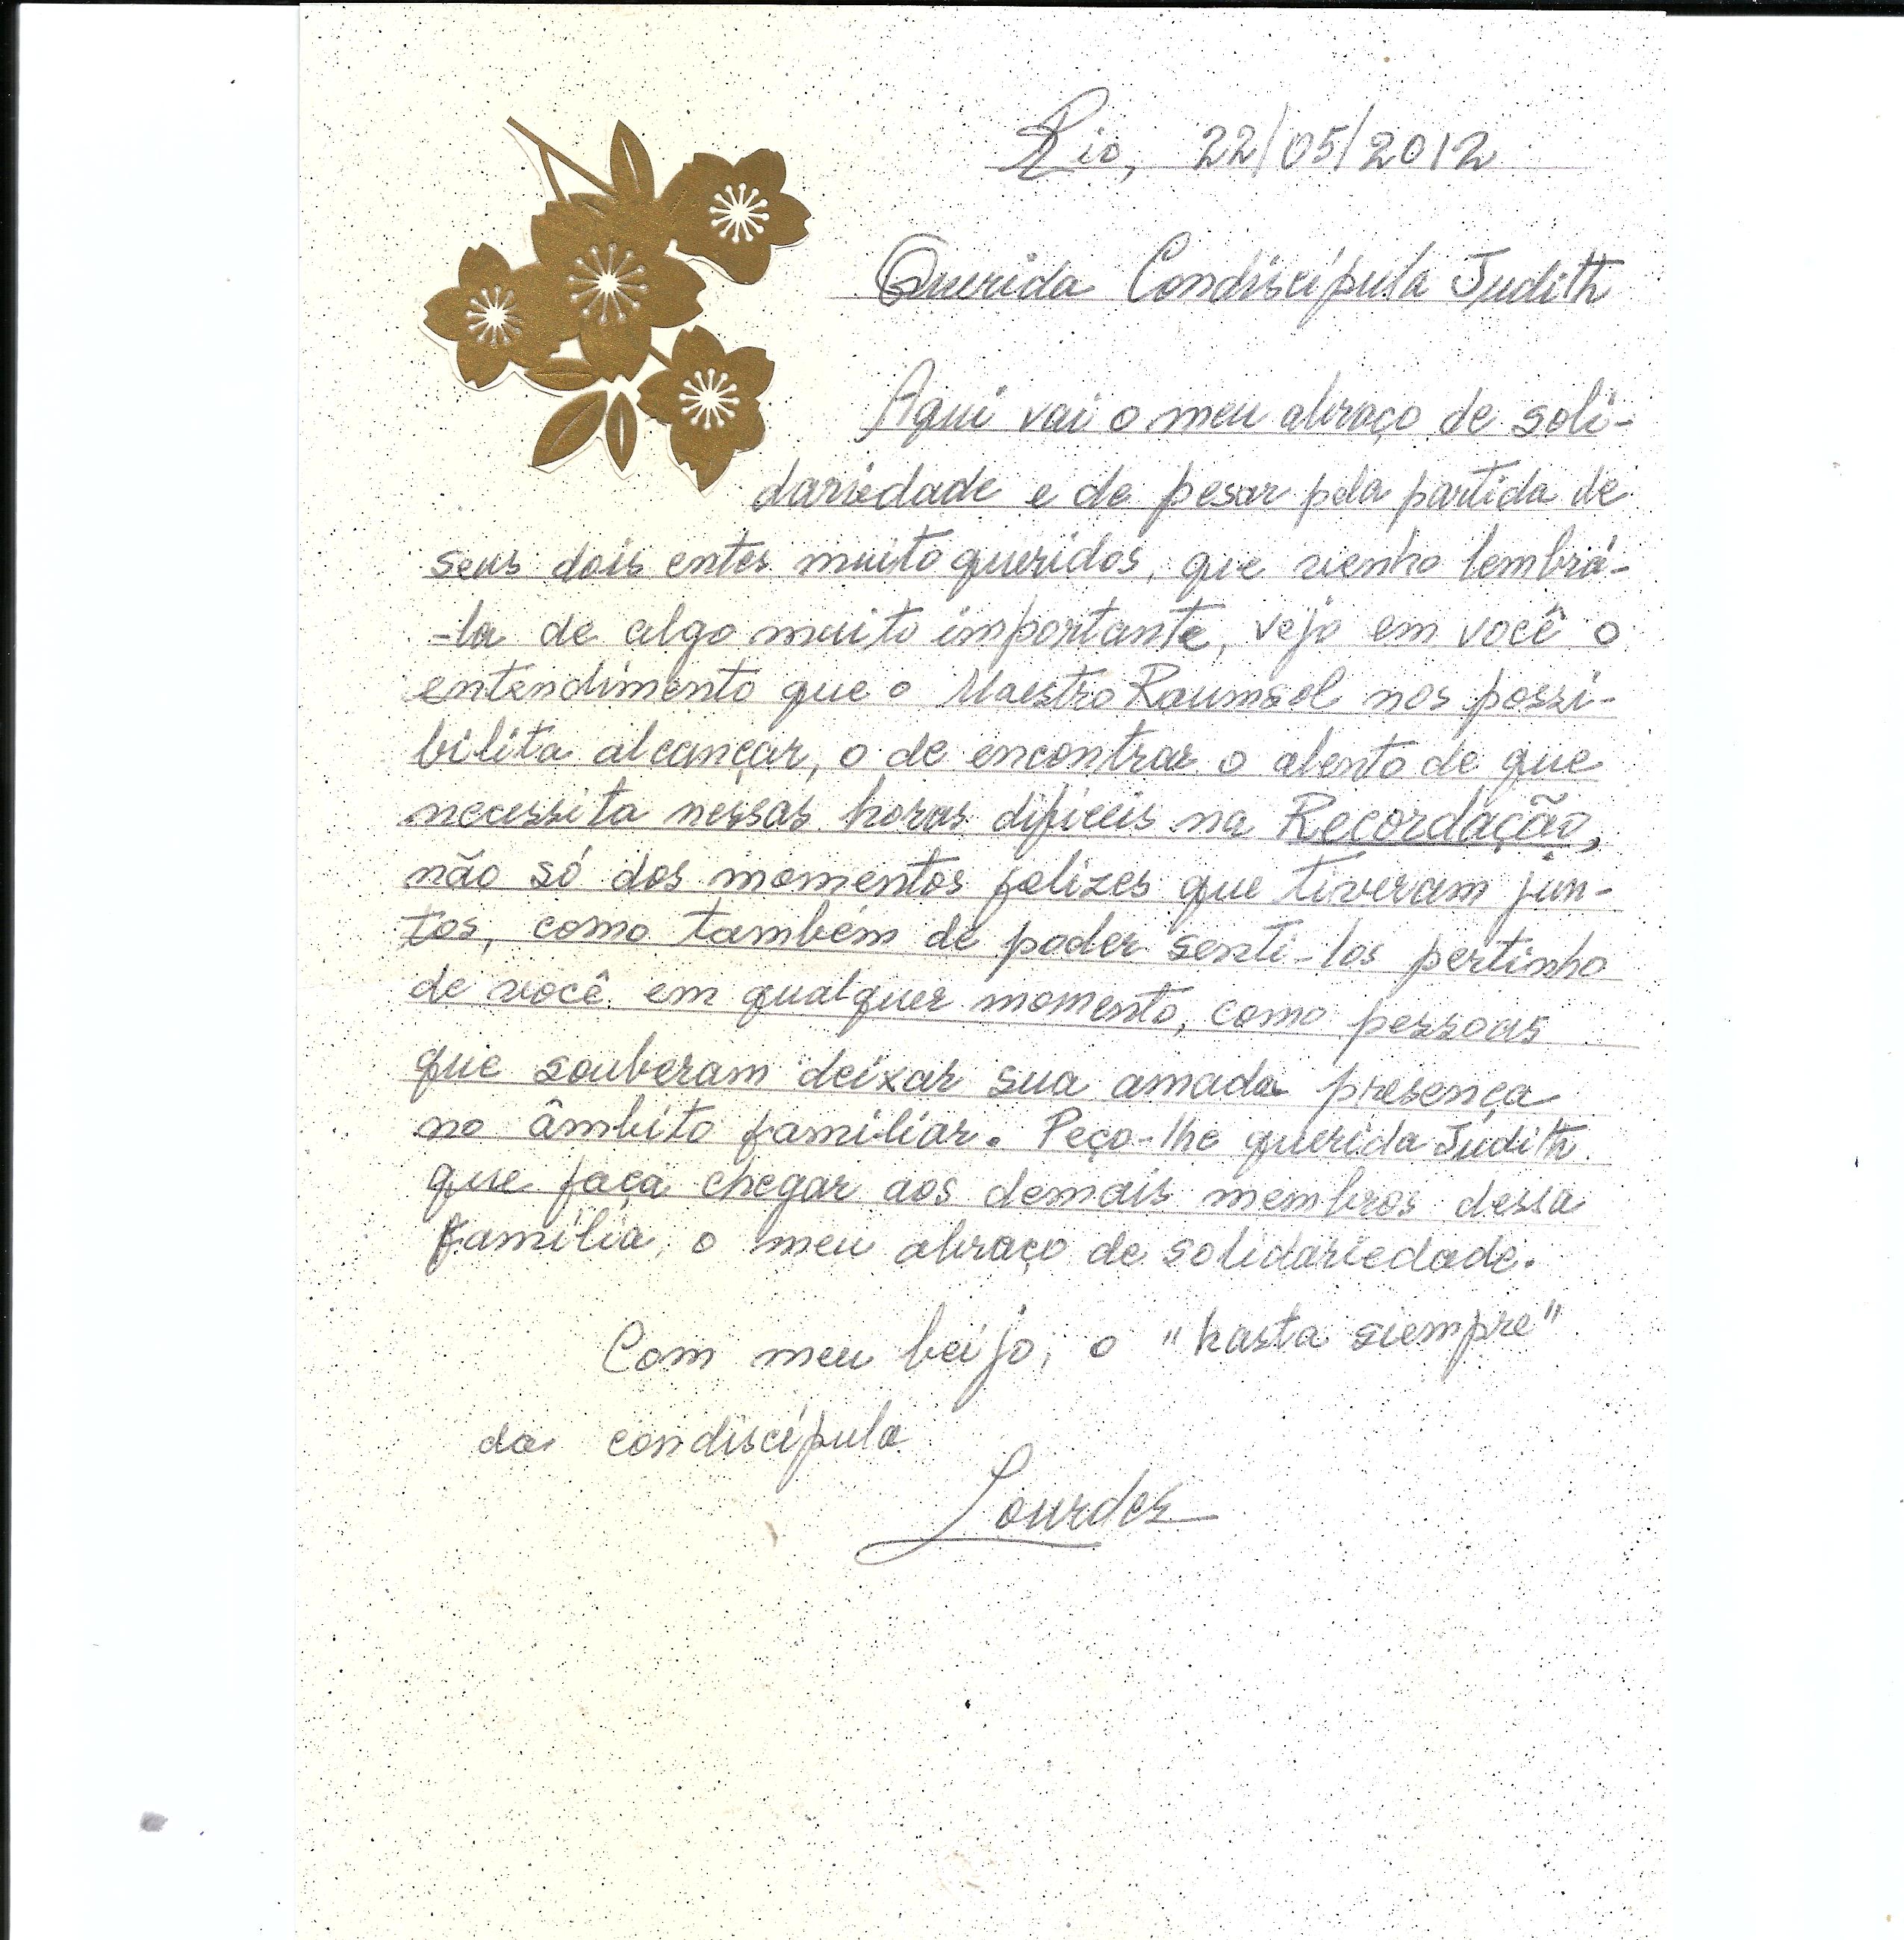 Rio, 22/05/2012
Querida Condiscípula Judith
Aqui vai o meu abraço de soli-
dariedade e de pesar pela partida de
seus dois entes muito queridos, que venho lembrá-
-la de algo muito importante, vejo em você o
entendimento que o Maestro Raumsol nos possi-
bilita alcançar, o de encontrar o alento de que
necessita nessas horas difíceis na Recordação,
não só dos momentos felizes que tiveram jun-
tos, como também de poder senti-los pertinho
de você em qualquer momento, como pessoas
que souberam deixar sua amada presença
no âmbito familiar. Peço-lhe querida Judith
que faça chegar aos demais membros dessa
família, o meu abraço de solidariedade.
Com meu beijo, o "hasta siempre"
da condiscípula
Lourdes